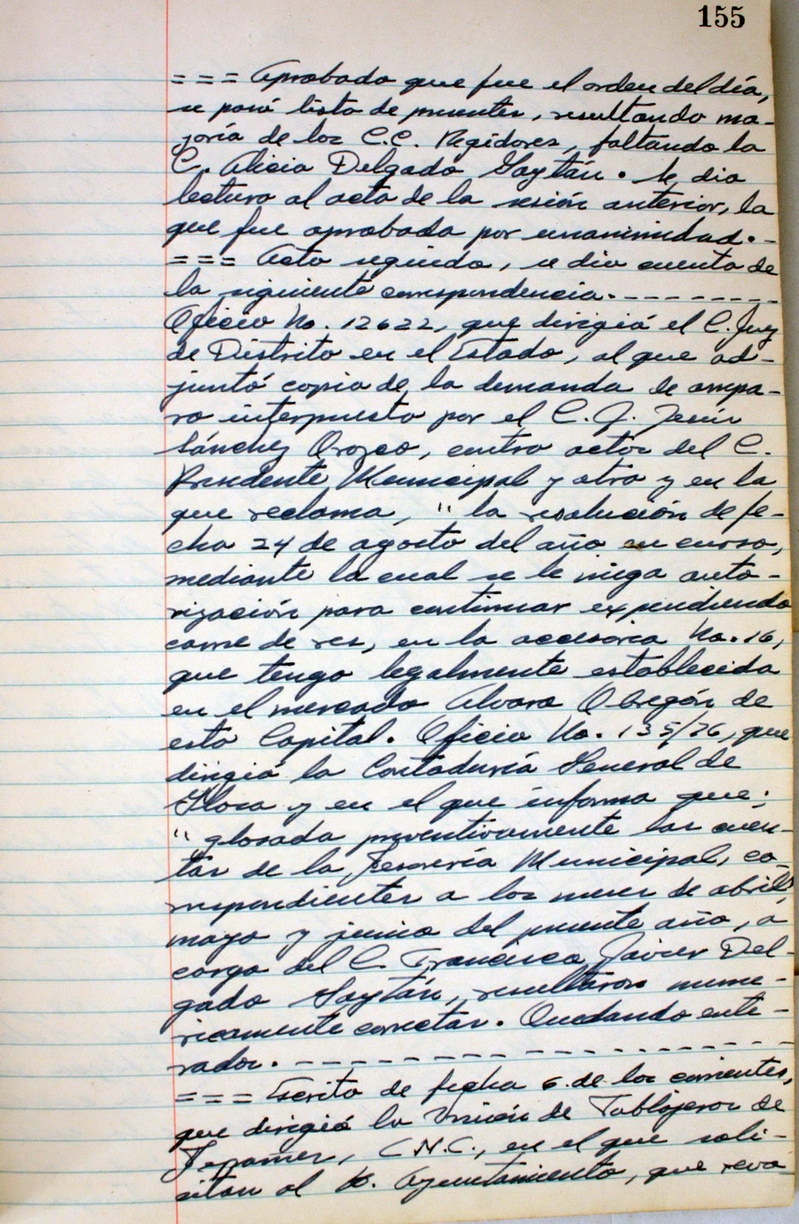 155
= = = Aprobada que fue el orden del día,
se pasó lista de presentes, resultando ma-
yoría de los C.C. Regidores, faltando la
C. Alicia Delgado Gaytán. Se dio
lectura al acta de la sesión anterior, la
que fue aprobada por unanimidad. -
= = = Acto seguido, se dio cuenta de
la siguiente correspondencia. - - - - - - -
Oficio No. 12622, que dirigió el C. Juez
de Distrito en el Estado, al que ad-
juntó copia de la demanda de ampa-
ro interpuesto por el C. J. Jesús
Sánchez Orozco, contra actos del C.
Presidente Municipal y otro y en la
que reclama, " la resolución de fe-
cha 24 de agosto del año en curso,
mediante la cual se le niega auto-
rización para continuar expendiendo
carne de res, en la accesoria No. 16,
que tengo legalmente establecida
en el mercado Alvaro Obregón de
esta Capital. Oficio No. 135/76, que
dirigió la Contaduría General de
Glosa y en el que informa que:
" glosada preventivamente las cuen-
tas de la Tesorería Municipal, co-
rrespondientes a los meses de abril,
mayo y junio del presente año, a
cargo del C. Francisco Javier Del-
gado Gaytán, resultaron numé-
ricamente correctas. Quedando ente-
rados. - - - - - - - - - - - - - - - -
= = = Escrito de fecha 6 de los corrientes,
que dirigió la Unión de Tablajeros de
C.N.C., en el que soli-
citan al H. Ayuntamiento, que reva